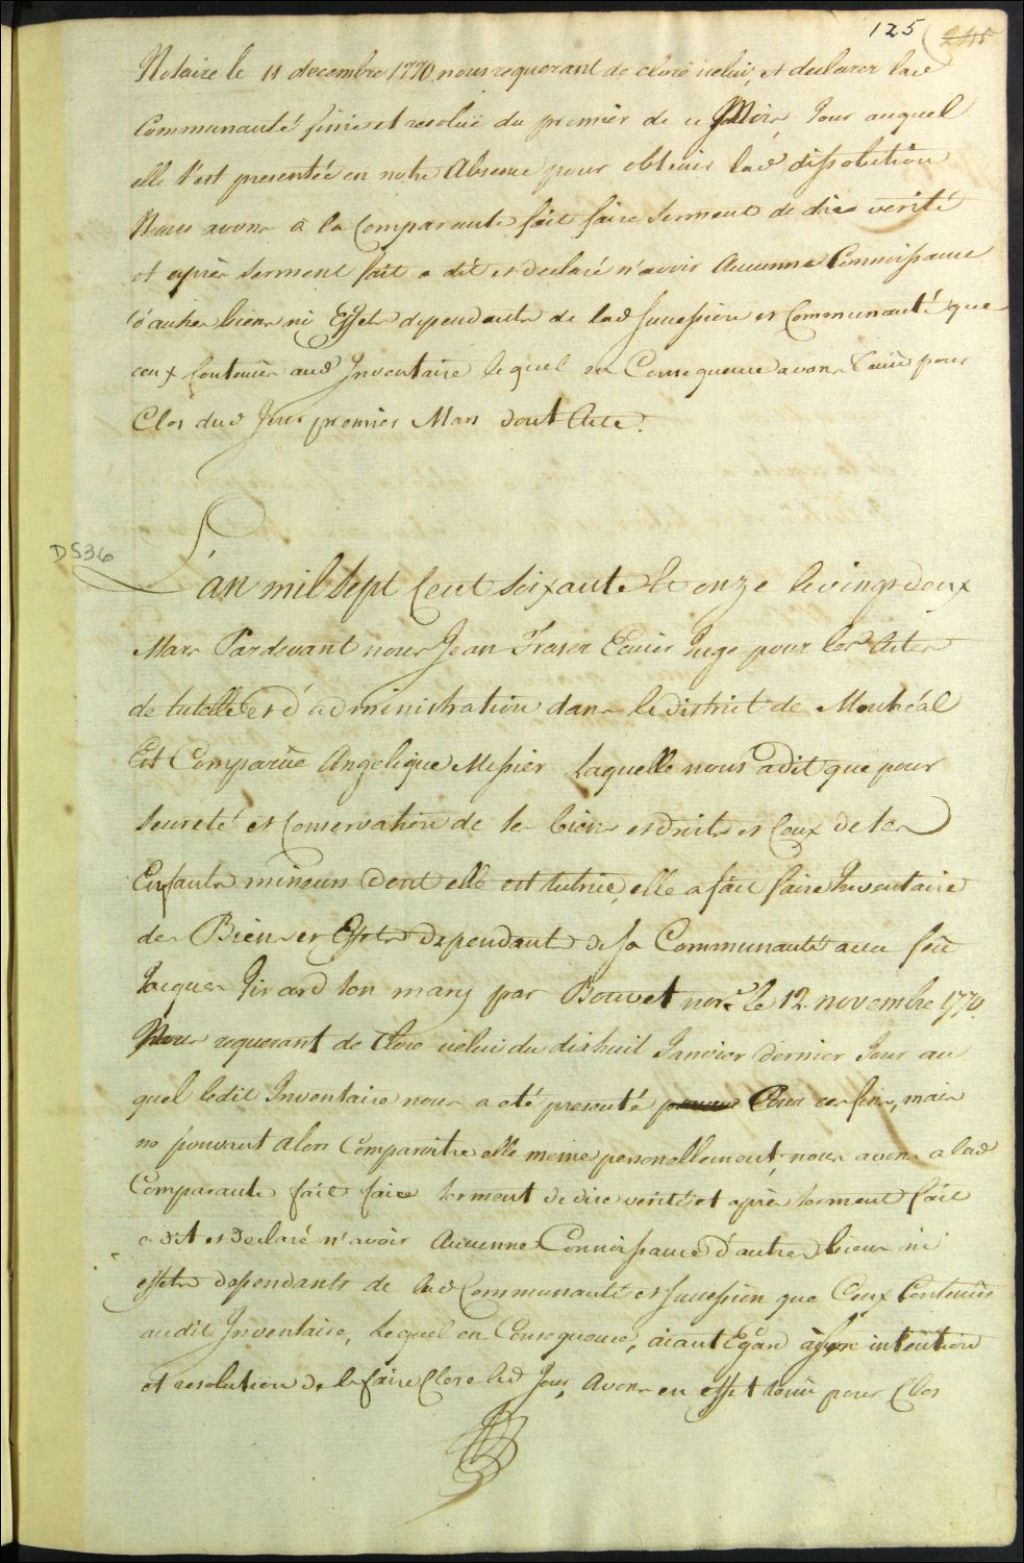 125 245
Notaire le 11 decembre 1770 nous requerant de clore icelui, et declarer lad
Communauté finie et resolüe du premier de ce Mois, Jour auquel
elle s'est presentée en notre Absence pour obtenir lad dissolution
Nous avons à la Comparante fait faire serment de dire verité
et après serment fait a dit et declaré n'avoir Aucunne Connoissance
d'autres biens ni Effets dependants de lad succession et Communauté que
ceux Contenües aud Inventaire lequel en Consequence avons tenu pour
Clos dud Jour premier Mars dont Acte.
DS36
L'an mil sept Cent soixante et onze le vingt deux
Mars Pardevant nous Jean Fraser Ecuier Juge pour les Actes
de tutelle et d'administration dans le district de Montréal
Est Comparüe Angelique Messier laquelle nous a dit que pour
seureté et Conservation de ses biens et droits et Ceux de ses
Enfants mineurs dont elle est tutrice, elle a fait faire Inventaire
des Biens et Effets dependants de sa Communauté avec feü
Jacques Girard son mary par Bouvet nore. le 12. novembre 1770.
Nous requerant de Clore icelui du dixhuit Janvier dernier Jour au
quel ledit Inventaire nous a été presenté Pour ces fins, mais
ne pouvant alors Comparoître elle meme personellement, nous avons a lad
Comparante fait faire serment de dire verité et après serment fait
a dit et declaré n'avoir Aucunne Connoissance d'autres biens ni
effets dependants de lad Communauté et succession que Ceux Contenües
audit Inventaire, Lequel en Consequence, aiant Egard à son intention
et resolution de le faire Clore led Jour, Avons en effet tenu pour Clos